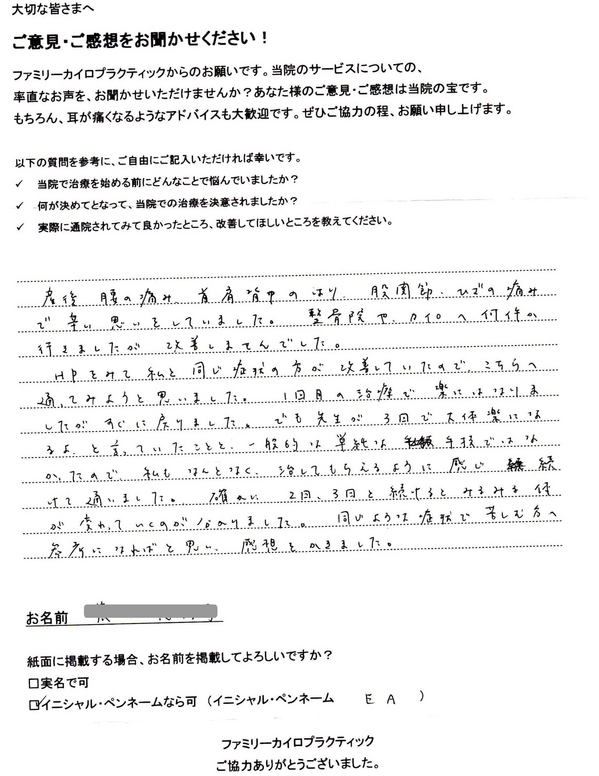 大切な皆さまへ
ご意見・ご感想をお聞かせください！
ファミリーカイロプラクティックからのお願いです。当院のサービスについての、
率直なお声を、お聞かせいただけませんか？あなた様のご意見・ご感想は当院の宝です。
もちろん、耳が痛くなるようなアドバイスも大歓迎です。ぜひご協力の程、お願い申し上げます。
以下の質問を参考に、ご自由にご記入いただければ幸いです。
✓ 当院で治療を始める前にどんなことで悩んでいましたか？
✓ 何が決めてとなって、当院での治療を決意されましたか？
✓ 実際に通院されてみて良かったところ、改善してほしいところを教えてください。
産後 腰の痛み、首肩背中のはり、股関節、ひざの痛み
で辛い思いをしていました。 整骨院や、カイロへ何件か
行きましたが 改善しませんでした。
HPをみて私と同じ症状の方が改善していたので、こちらへ
通ってみようと思いました。 1回目の治療で楽にはなりま
したがすぐに戻りました。でも先生が3回で大体楽にな
るよ、と言っていたことと、一般的な単純な 手技ではな
かったので 私もなんとなく、治してもらえるように感じ 続
けて通いました。 確かに 2回、3回と続けるとみるみる体
が変わっていくのが分かりました。 同じような症状で苦しむ方へ
参考になればと思い、感想をかきました。
お名前
紙面に掲載する場合、お名前を掲載してよろしいですか？
□実名で可
☑イニシャル・ペンネームなら可（イニシャル・ペンネーム E A ）
ファミリーカイロプラクティック
ご協力ありがとうございました。